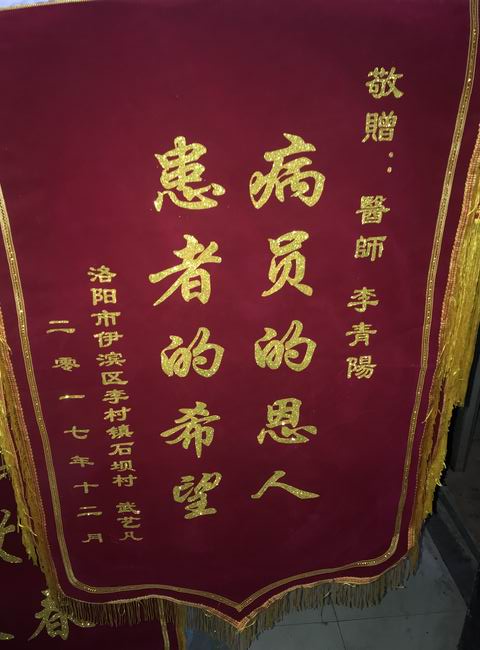 敬贈：醫師 李青陽
病员的恩人
患者的希望
洛阳市伊滨区李村镇石坝村 武艺凡
二零一七年十二月
春